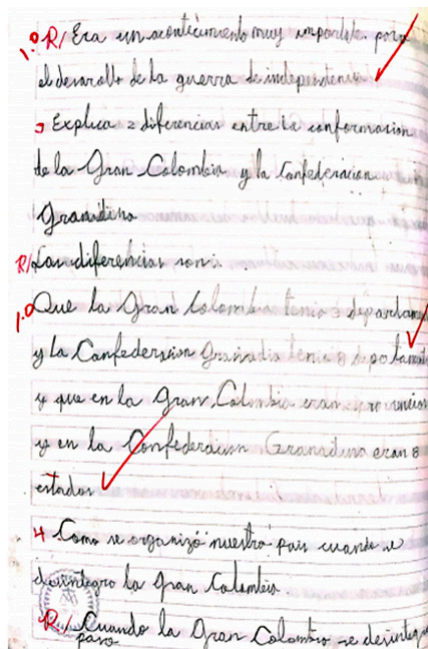 1.0 R/ Era un acontecimiento muy importate para
el desarollo de la guerra de independencia
3 Explica 2 diferencias entre la conformacion
de la Gran Colombia y la Confederacion
Granadina
R/ Las diferencias son:
1.0 Que la Gran Colombia tenia 3 departament
y la Confederacion Granadia tenia 8 departament
y que en la Gran Colombia eran provincias
y en la Confederacion Granadina eran 8
estados
4 Como se organizó nuestro pais cuando se
desintegro la Gran Colombia.
R/ Cuando la Gran Colombia se desintegro
paso